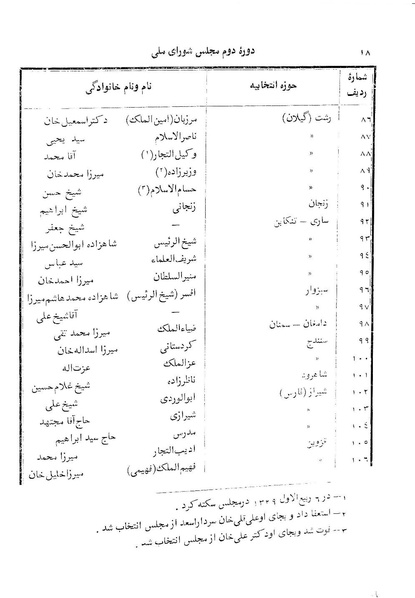 ۱۸ دوره دوم مجلس شورای ملی
شماره ردیف حوزه انتخابیه نام ونام خانوادگی
۸۶ رشت (گیلان) مرزبان (امین‌الملک) دکتر اسمعیل خان
۸۷ « ناصرالاسلام سید یحیی
۸۸ « وکیل التجار(۱) آقا محمد
۸۹ « وزیرزاده(۲) میرزا محمدخان
۹۰ « حسام‌الاسلام(۳) شیخ حسن
۹۱ زنجان زنجانی شیخ ابراهیم
۹۲ ساری – تنکابن — شیخ جعفر
۹۳ « شیخ الرئیس شاهزاده ابوالحسن میرزا
۹۴ « شریف العلماء سید عباس
۹۵ « منیرالسلطان میرزا احمدخان
۹۶ سبزوار افسر (شیخ الرئیس) شاهزاده محمد هاشم میرزا
۹۷ « — آقاشیخ علی
۹۸ دامغان – سمنان ضیاءالملک میرزا محمد تقی
۹۹ سنندج کردستانی میرزا اسداله خان
۱۰۰ « عزالملک عزت‌اله
۱۰۱ شاهرود شیخ غلام حسین
۱۰۲ شیراز (فارس) ابوالوردی شیخ علی
۱۰۳ « شیرازی حاج آقا مجتهد
۱۰۴ « مدرس حاج سید ابراهیم
۱۰۵ قزوین ادیب التجار میرزا محمد
۱۰۶ « فهیم‌الملک (فهیمی) میرزا خلیل خان
۱– در ۶ ربیع الاول ۱۳۲۹ درمجلس سکته کرد .
۲– استعفا داد و بجای اوعلی‌قلی‌خان سردار اسعد از مجلس انتخاب شد .
۳– فوت شد وبجای اودکتر علی‌خان از مجلس انتخاب شد .